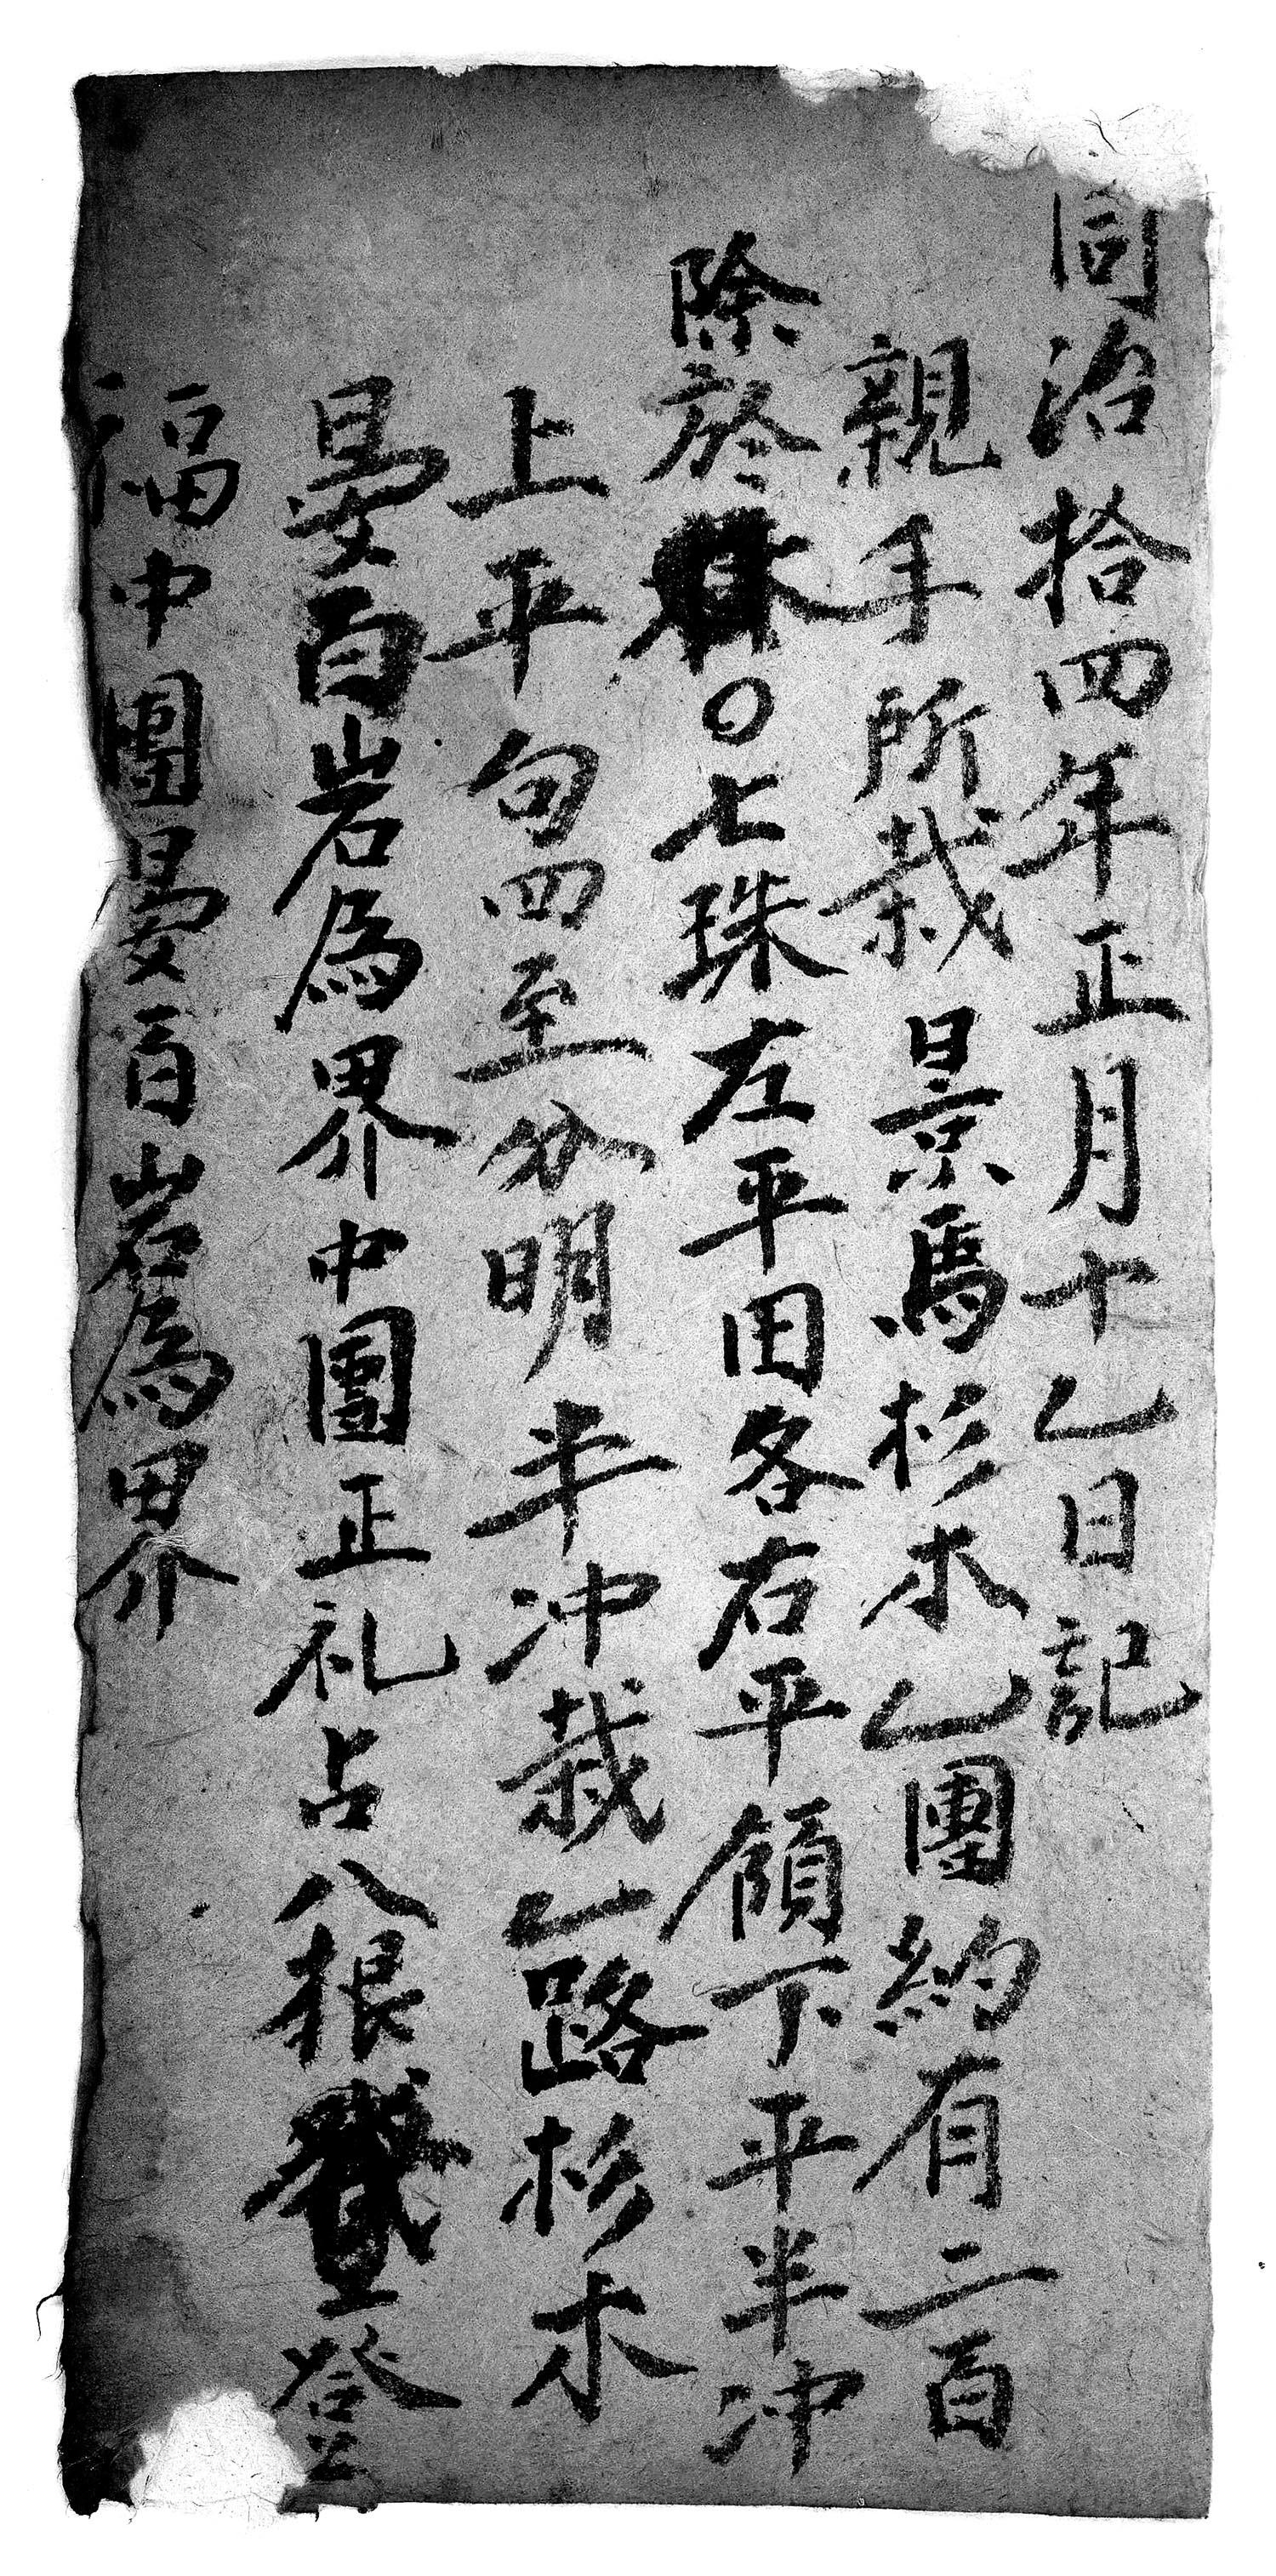 同治拾四年正月十乙日記
親手所栽景馬杉木乙團約有二百
除於〇七珠左平田各右平領下平半冲
上平句四至分明半冲栽一路杉木
晏百岩為界中團正礼占八根登
福中團晏百岩為界